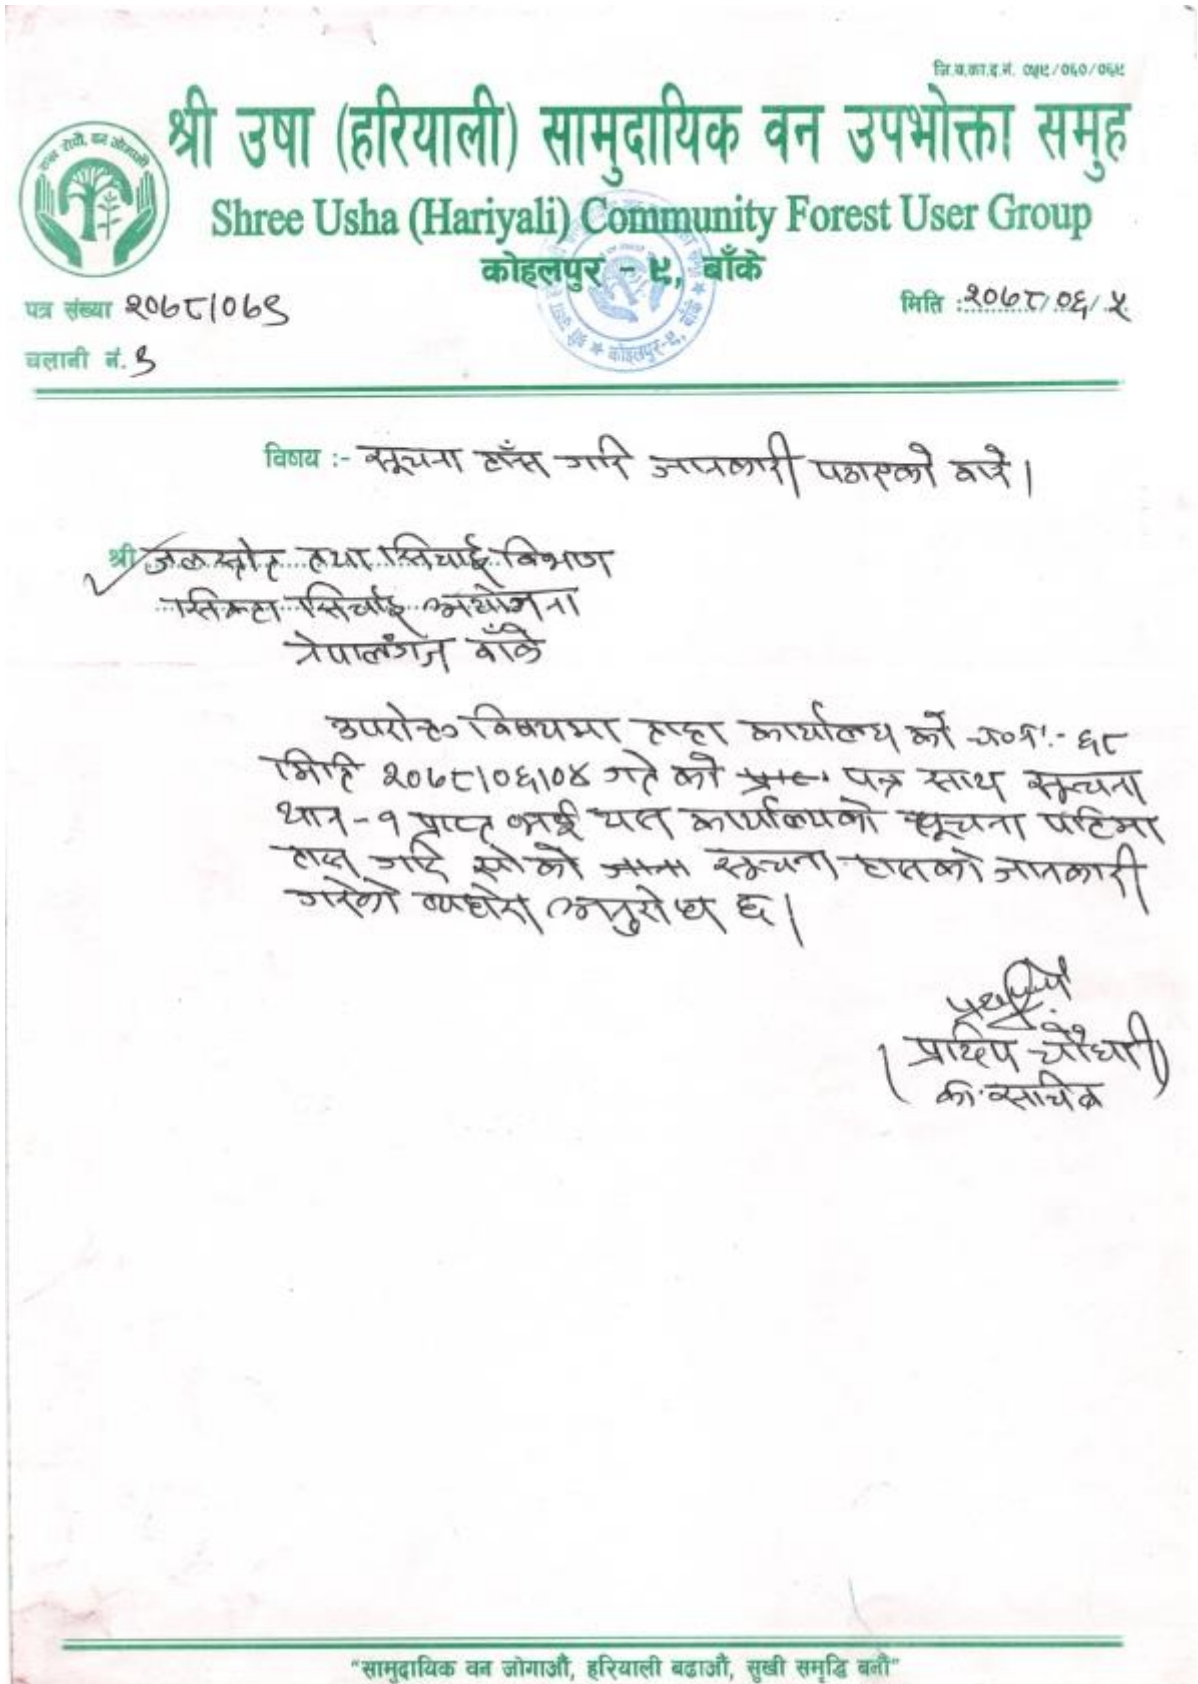 जि.व.का.द.नं. ०५९/०६०/०६९
श्री उषा (हरियाली) सामुदायिक वन उपभोक्ता समुह
Shree Usha (Hariyali) Community Forest User Group
कोहलपुर - ९, बाँके
पत्र संख्या २०६८/०६९
मिति : २०६८/०६/५
चलानी नं. ९
कोहलपुर-९, बाँके
विषय :- सूचना टाँस गरि जानकारी पठाएको बारे।
श्री जलस्रोत तथा सिचाई विभाग
सिक्टा सिचाई आयोजना
नेपालगंज बाँके
उपरोक्त विषयमा ताहा कार्यालय को च०नं:- ६८
मिति २०६८/०६/०४ गते को पत्र साथ सूचना
थान - १ प्राप्त भई यस कार्यालयको सूचना पाटिमा
टास गरि सो को सूचना टासको जानकारी
गरेको व्यहोरा अनुरोध छ।
(प्रदिप चौधरी)
का. सचिब
"सामुदायिक वन जोगाऔं, हरियाली बढाऔं, सुखी समृद्धि बनौं"